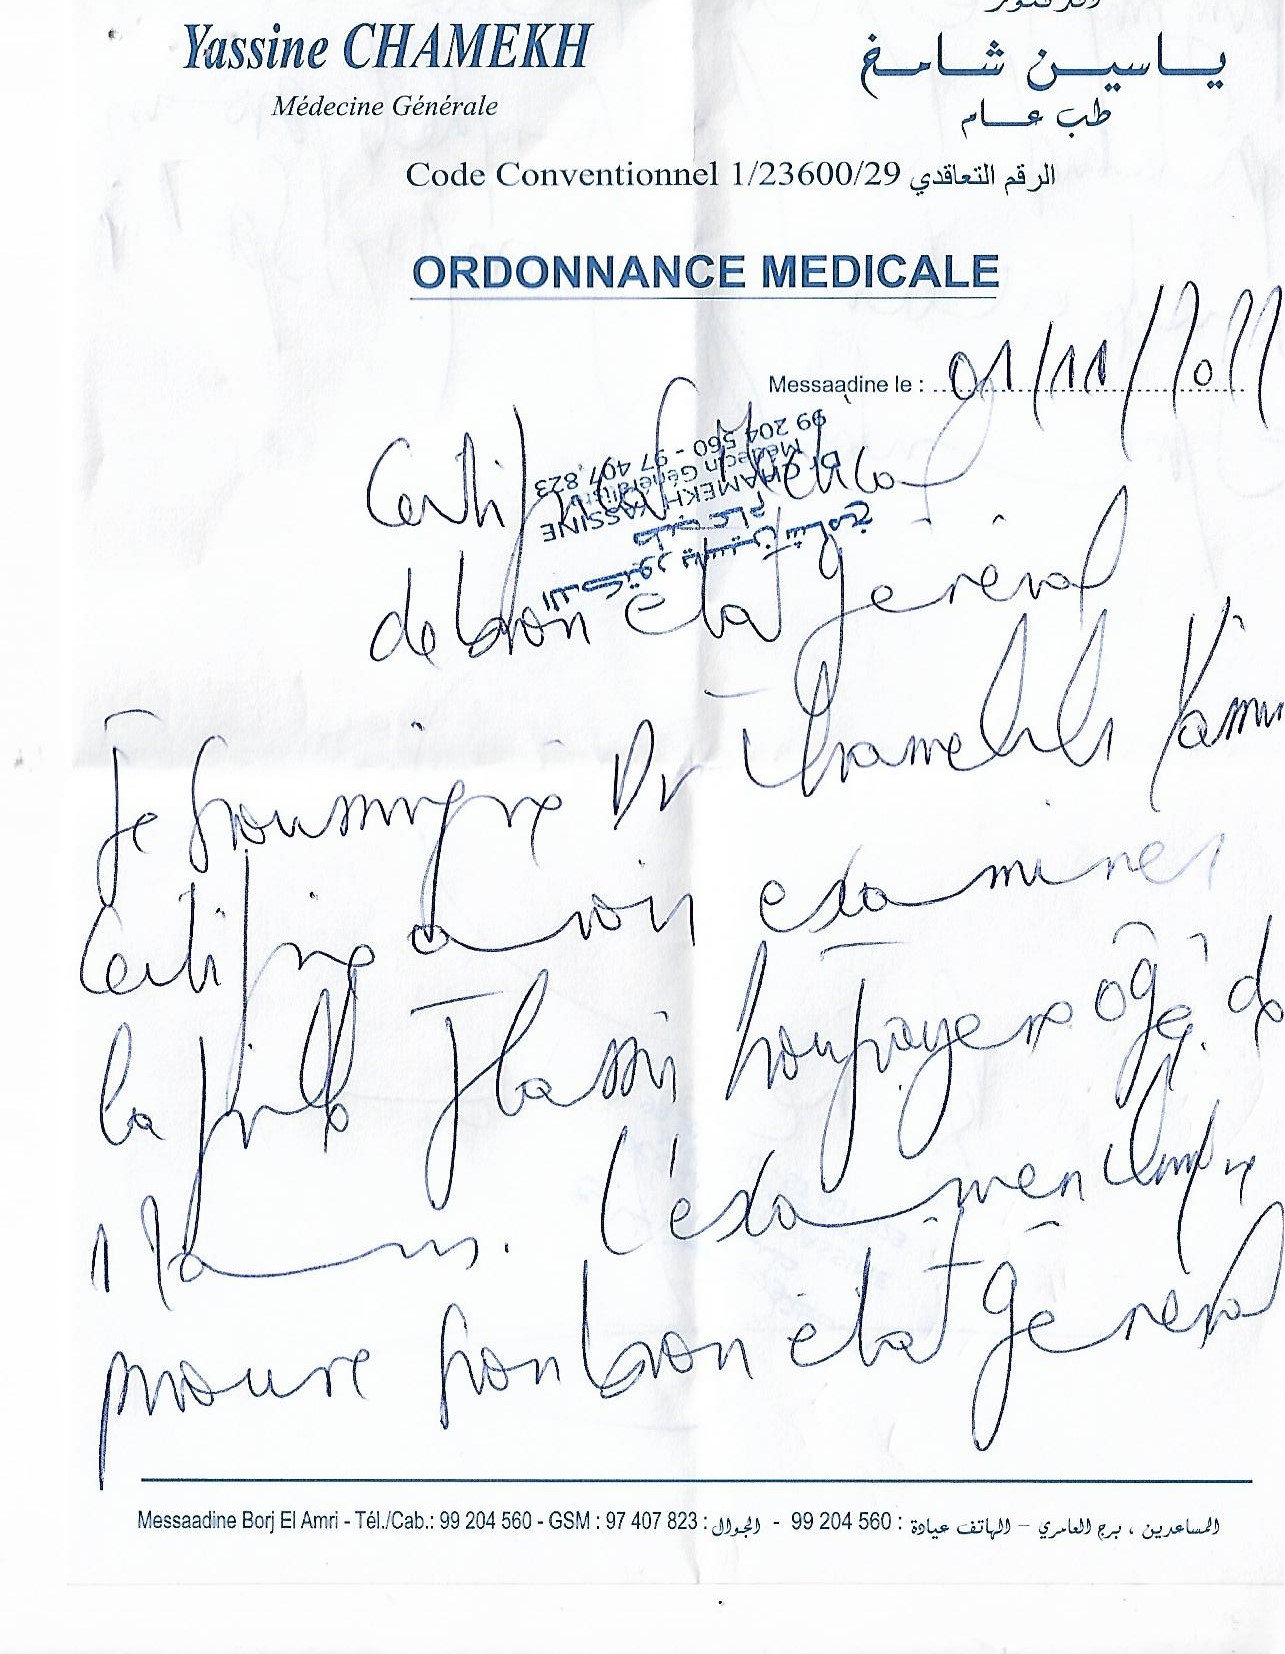 Yassine CHAMEKH
ياسين شامخ
Médecine Générale
طب عام
Code Conventionnel 1/23600/29 الرقم التعاقدي
ORDONNANCE MEDICALE
Messaadine le : 01/11/2022
Certificat Médical
de bon état général
الدكتور ياسين شامخ
طب عام
Dr CHAMEKH YASSINE
Médecin Généraliste
99 204 560 - 97 407 823
Je soussigné Dr Chamekh
Certifie avoir examiner
la fille âgé de
ans. L'examen
prouve son bon état général
Messaadine Borj El Amri - Tél./Cab.: 99 204 560 - GSM : 97 407 823 : الجوال - 99 204 560 : المساعدين ، برج العامري – الهاتف عيادة